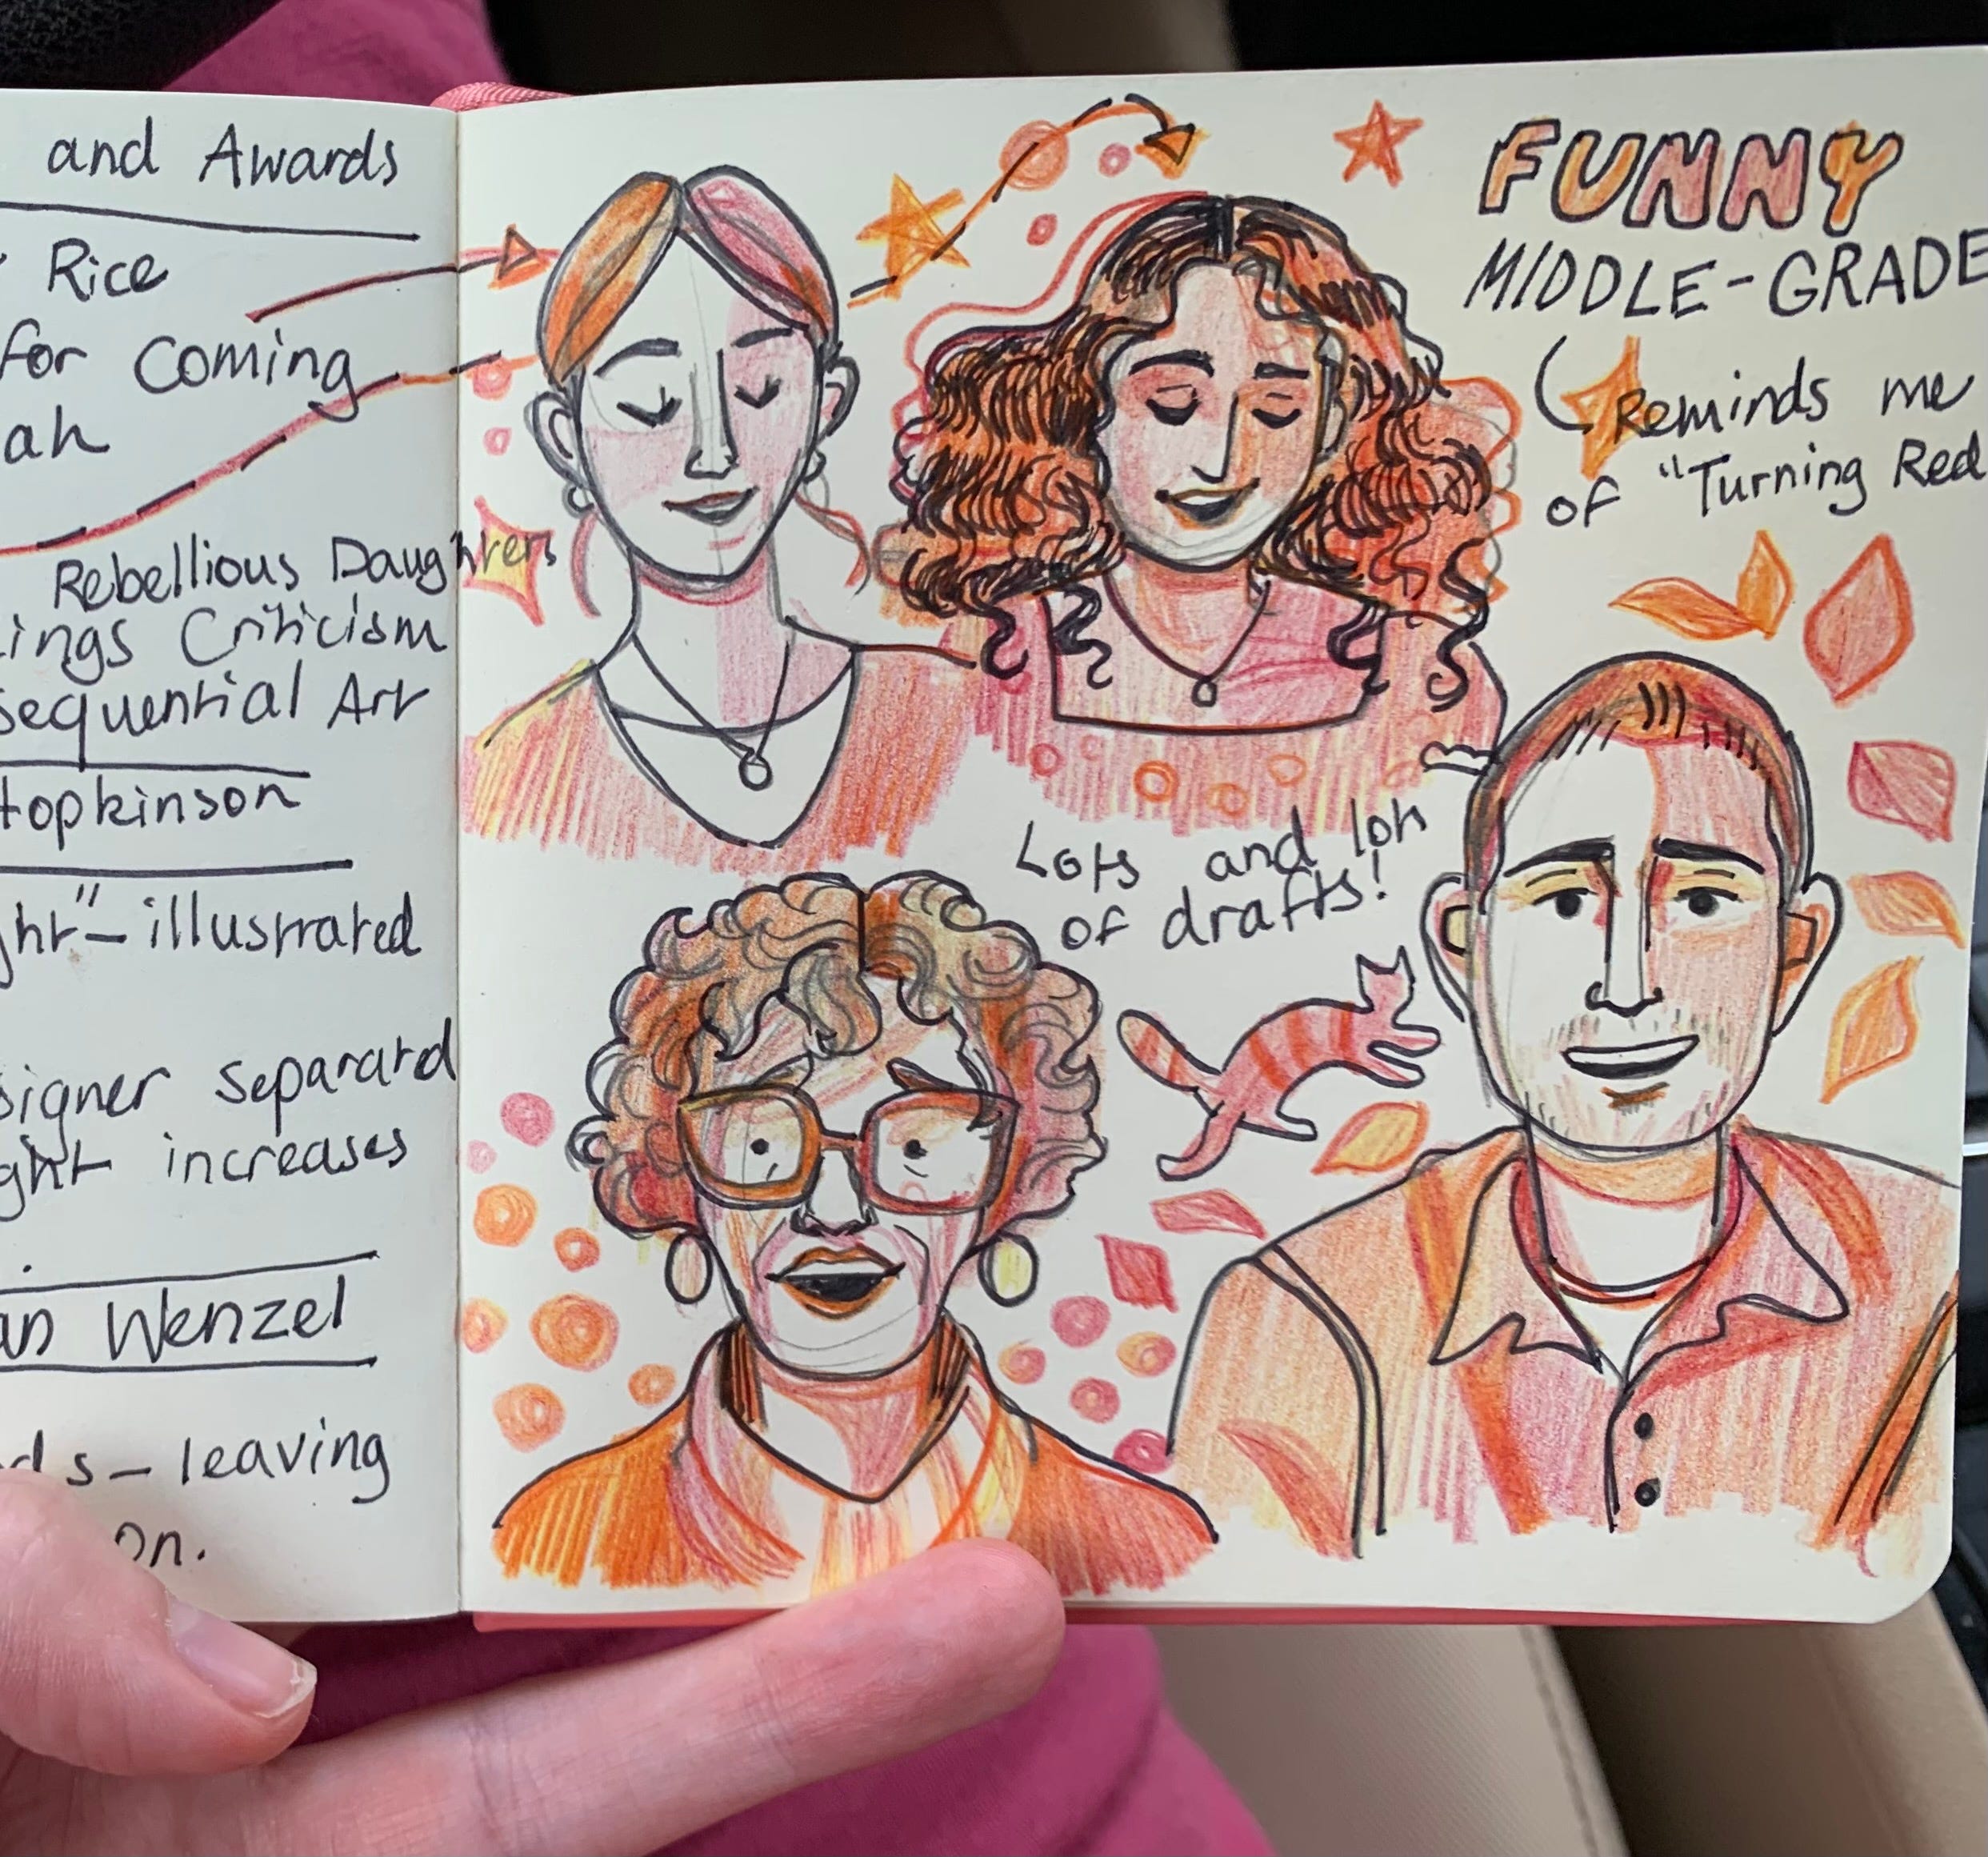 and Awards
Rice
for Coming
ah
Rebellious Daughters
ings Criticism
sequential Art
Hopkinson
ght" - illustrated
signer separated
ght increases
as Wenzel
ds - leaving
on.
FUNNY
MIDDLE-GRADE
Reminds me
of "Turning Red
Lots and lots
of drafts!